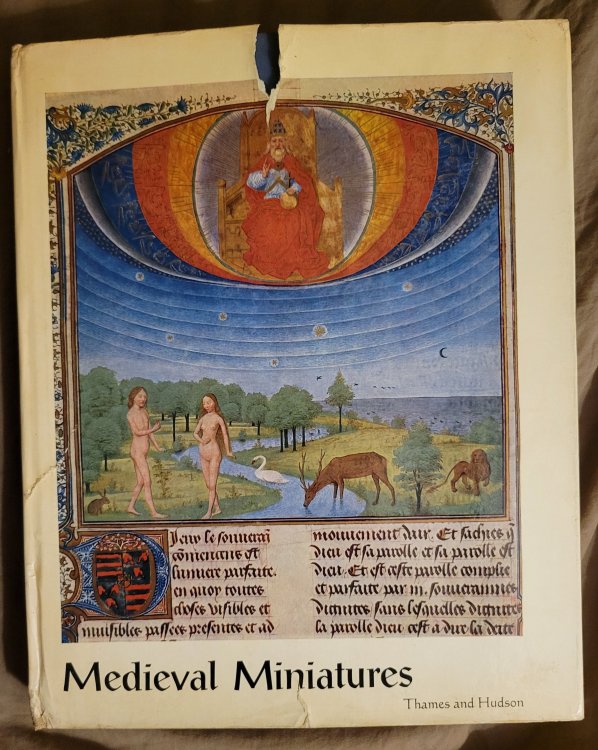 le souuerai᷉
est
lumiere parfaite.
en quoy toutes
choses visibles et
inuisibles passees presentes et ad
mouuement dair. Et saches q̄
dieu est sa parolle et sa parolle est
dieu. Et est ceste parolle complie
et parfaite par
dignites sans lesquelles dignites
la parolle dieu cest a dire la deite
Medieval Miniatures
Thames and Hudson